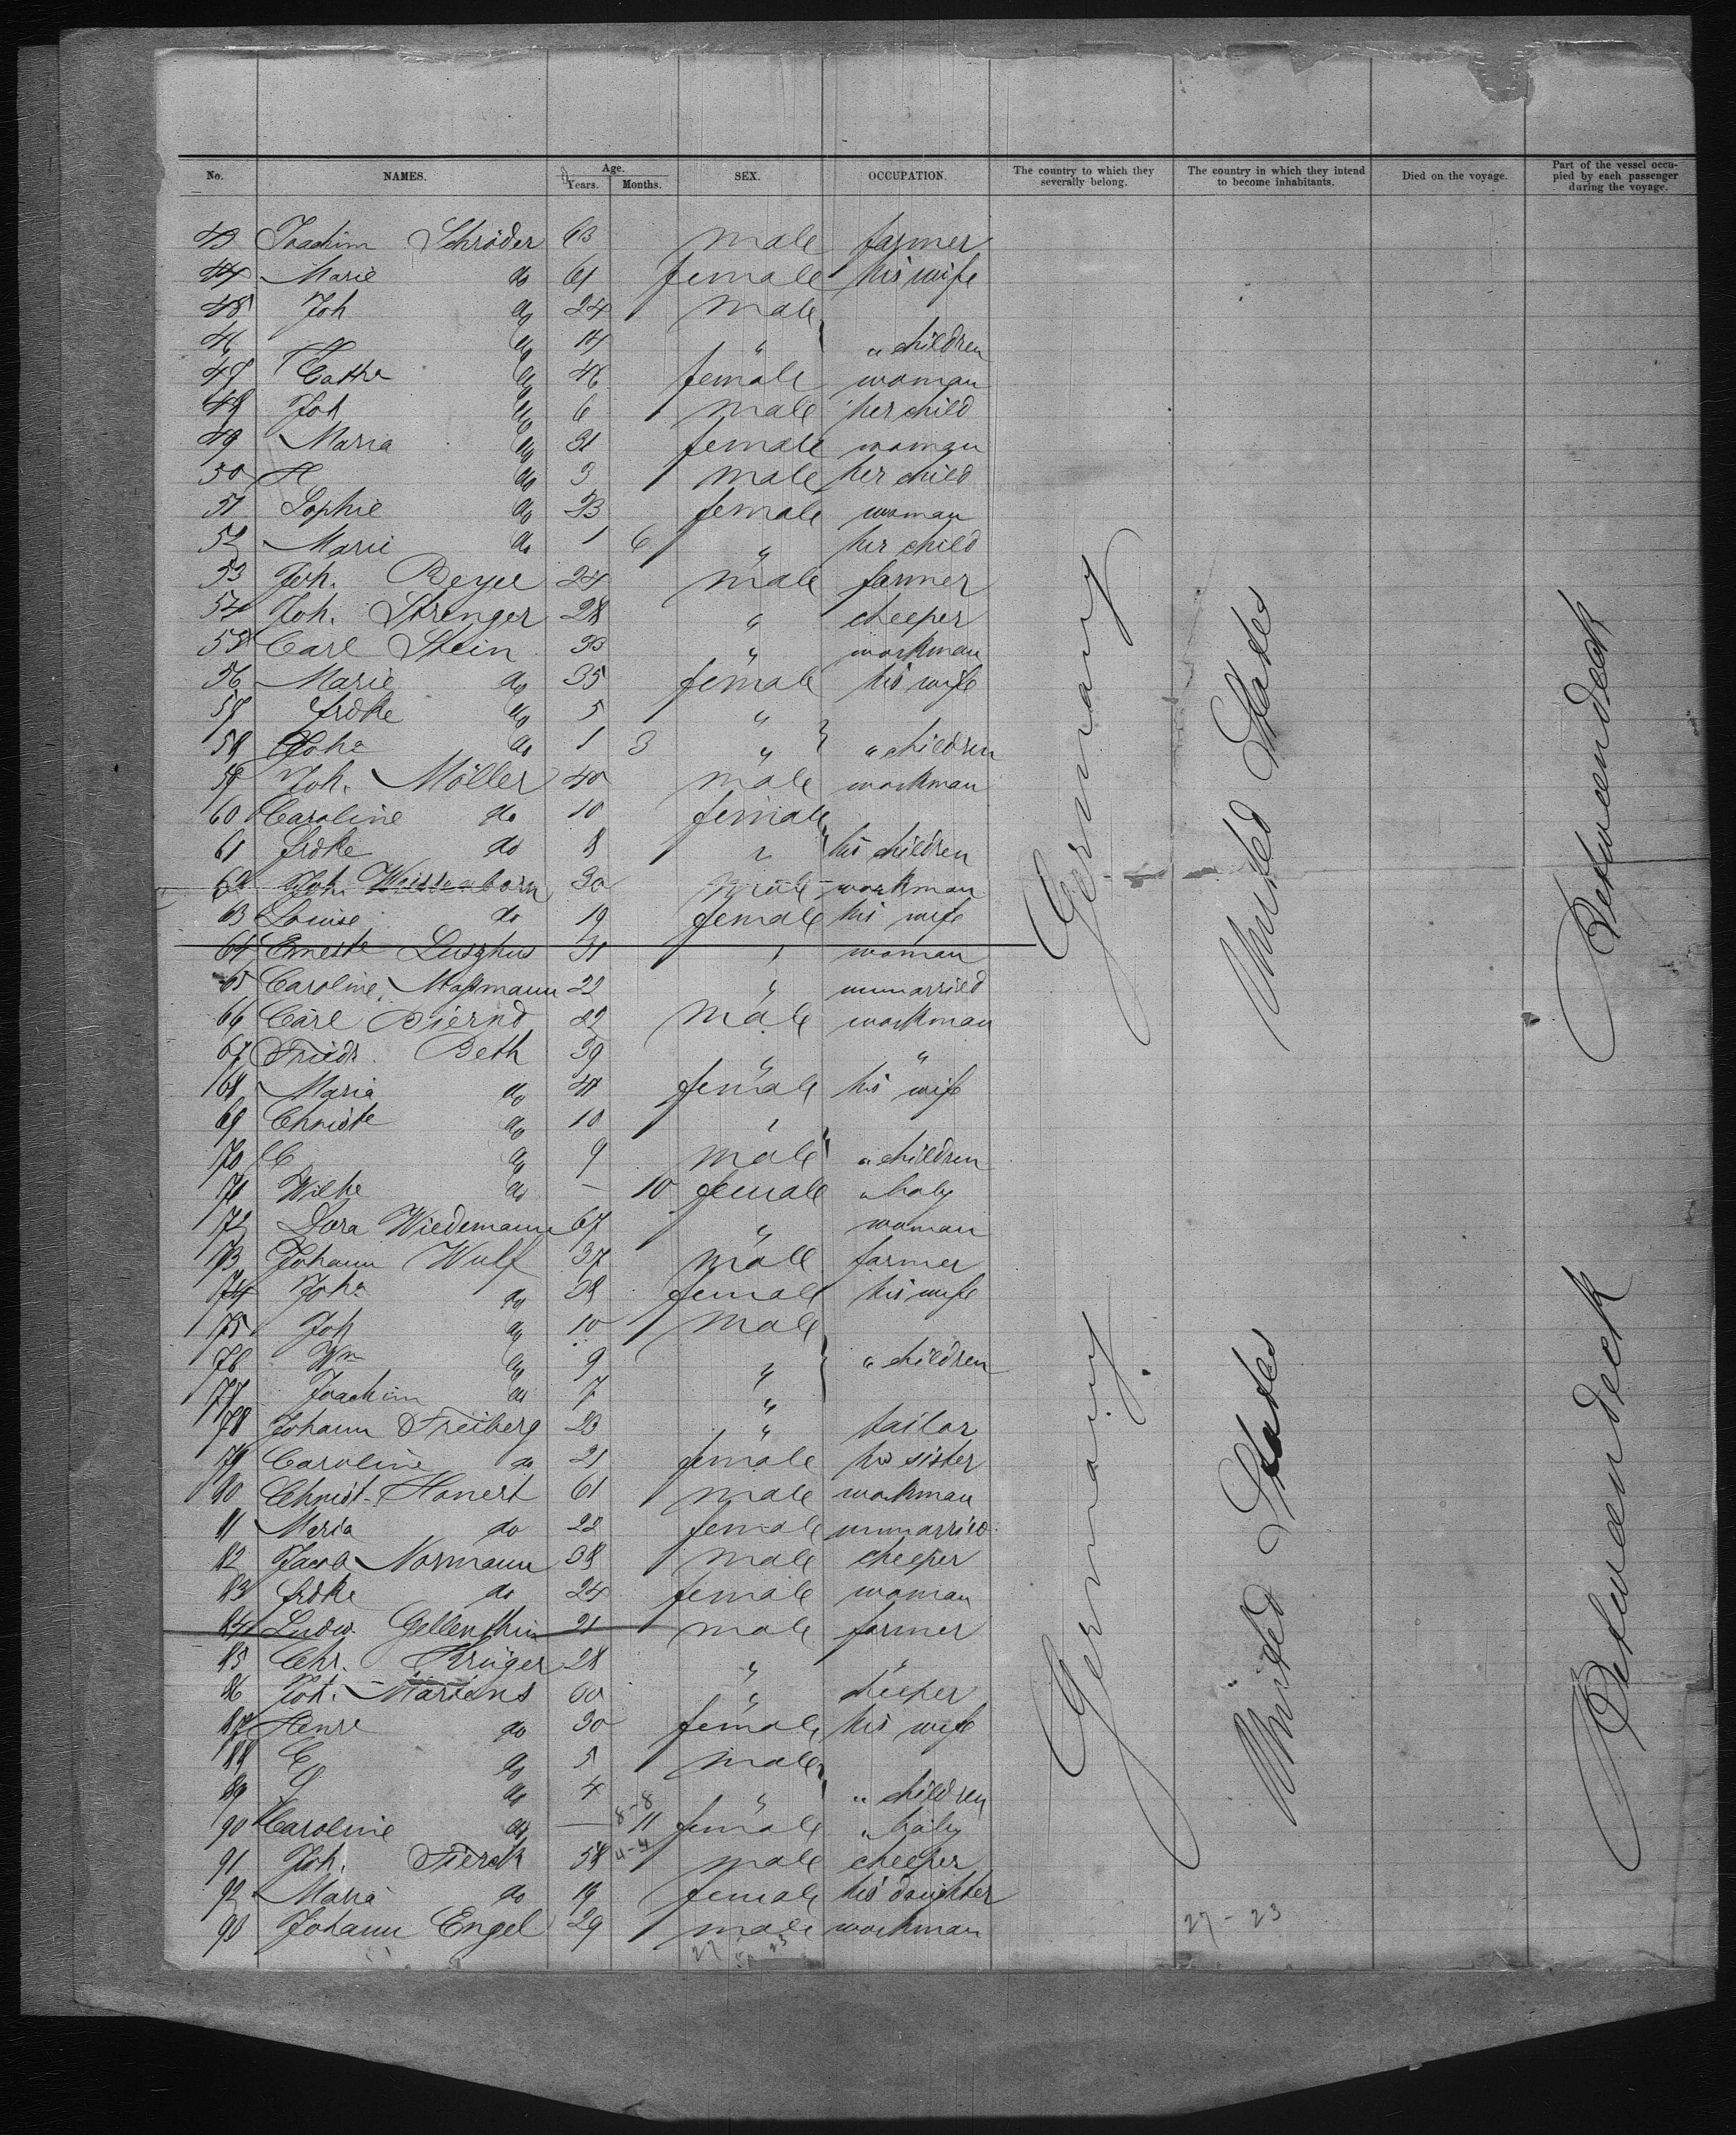 No. NAMES. Age. Years. Months. SEX. OCCUPATION. The country to which they severally belong. The country in which they intend to become inhabitants. Died on the voyage. Part of the vessel occupied by each passenger during the voyage.
43 Joachim Schröder 63 male farmer
44 Marie do 61 female his wife
45 Joh do 24 male
46 do 14 " " children
47 Cathe do 46 female woman
48 Joh do 6 male her child
49 Maria do 31 female woman
50 H do 3 male her child
51 Sophie do 23 female woman
52 Marie do 1 6 " her child
53 Joh. Beyer 24 male farmer
54 Joh. Strenger 28 " cheeper
55 Carl Stein 33 " workman
56 Marie do 35 female his wife
57 Frdke do 5 "
58 Joha do 1 3 " " children
59 Joh. Möller 40 male workman
60 Caroline do 10 female
61 Frdke do 8 " his children
62 Joh. Weissenborn 30 male workman
63 Louise do 19 female his wife
64 Erneste 31 " woman
65 Caroline 22 " unmarried
66 Carl 22 male workman
67 Friedr. Beth 39 " "
68 Maria do 41 female his wife
69 Christe do 10 "
70 C do 9 male " children
71 Wilhe do — 10 female " baby
72 Dora Wiedemann 67 " woman
73 Johann Wulf 37 male farmer
74 Joha do 38 female his wife
75 Joh do 10 male
76 Wm do 9 " " children
77 Joachim do 7 "
78 Johann Freiberg 23 " tailor
79 Caroline do 21 female his sister
80 Christ. Honert 61 male workman
81 Maria do 22 female unmarried
82 Jacob Normann 38 male cheeper
83 Frdke do 24 female woman
84 Ludw. Gellenthin 21 male farmer
85 Chr. Krüger 28 " "
86 Joh. Martens 60 " cheeper
87 Henre do 30 female his wife
88 C do 5 male
89 do 4 " " children
90 Caroline do — 11 female " baby
8-8
4-4
91 Joh. 58 male cheeper
92 Maria do 19 female his daughter
93 Johann Engel 29 male workman
27 23
Germany
United States
Betweendeck
Germany
United States
Betweendeck
27 - 23